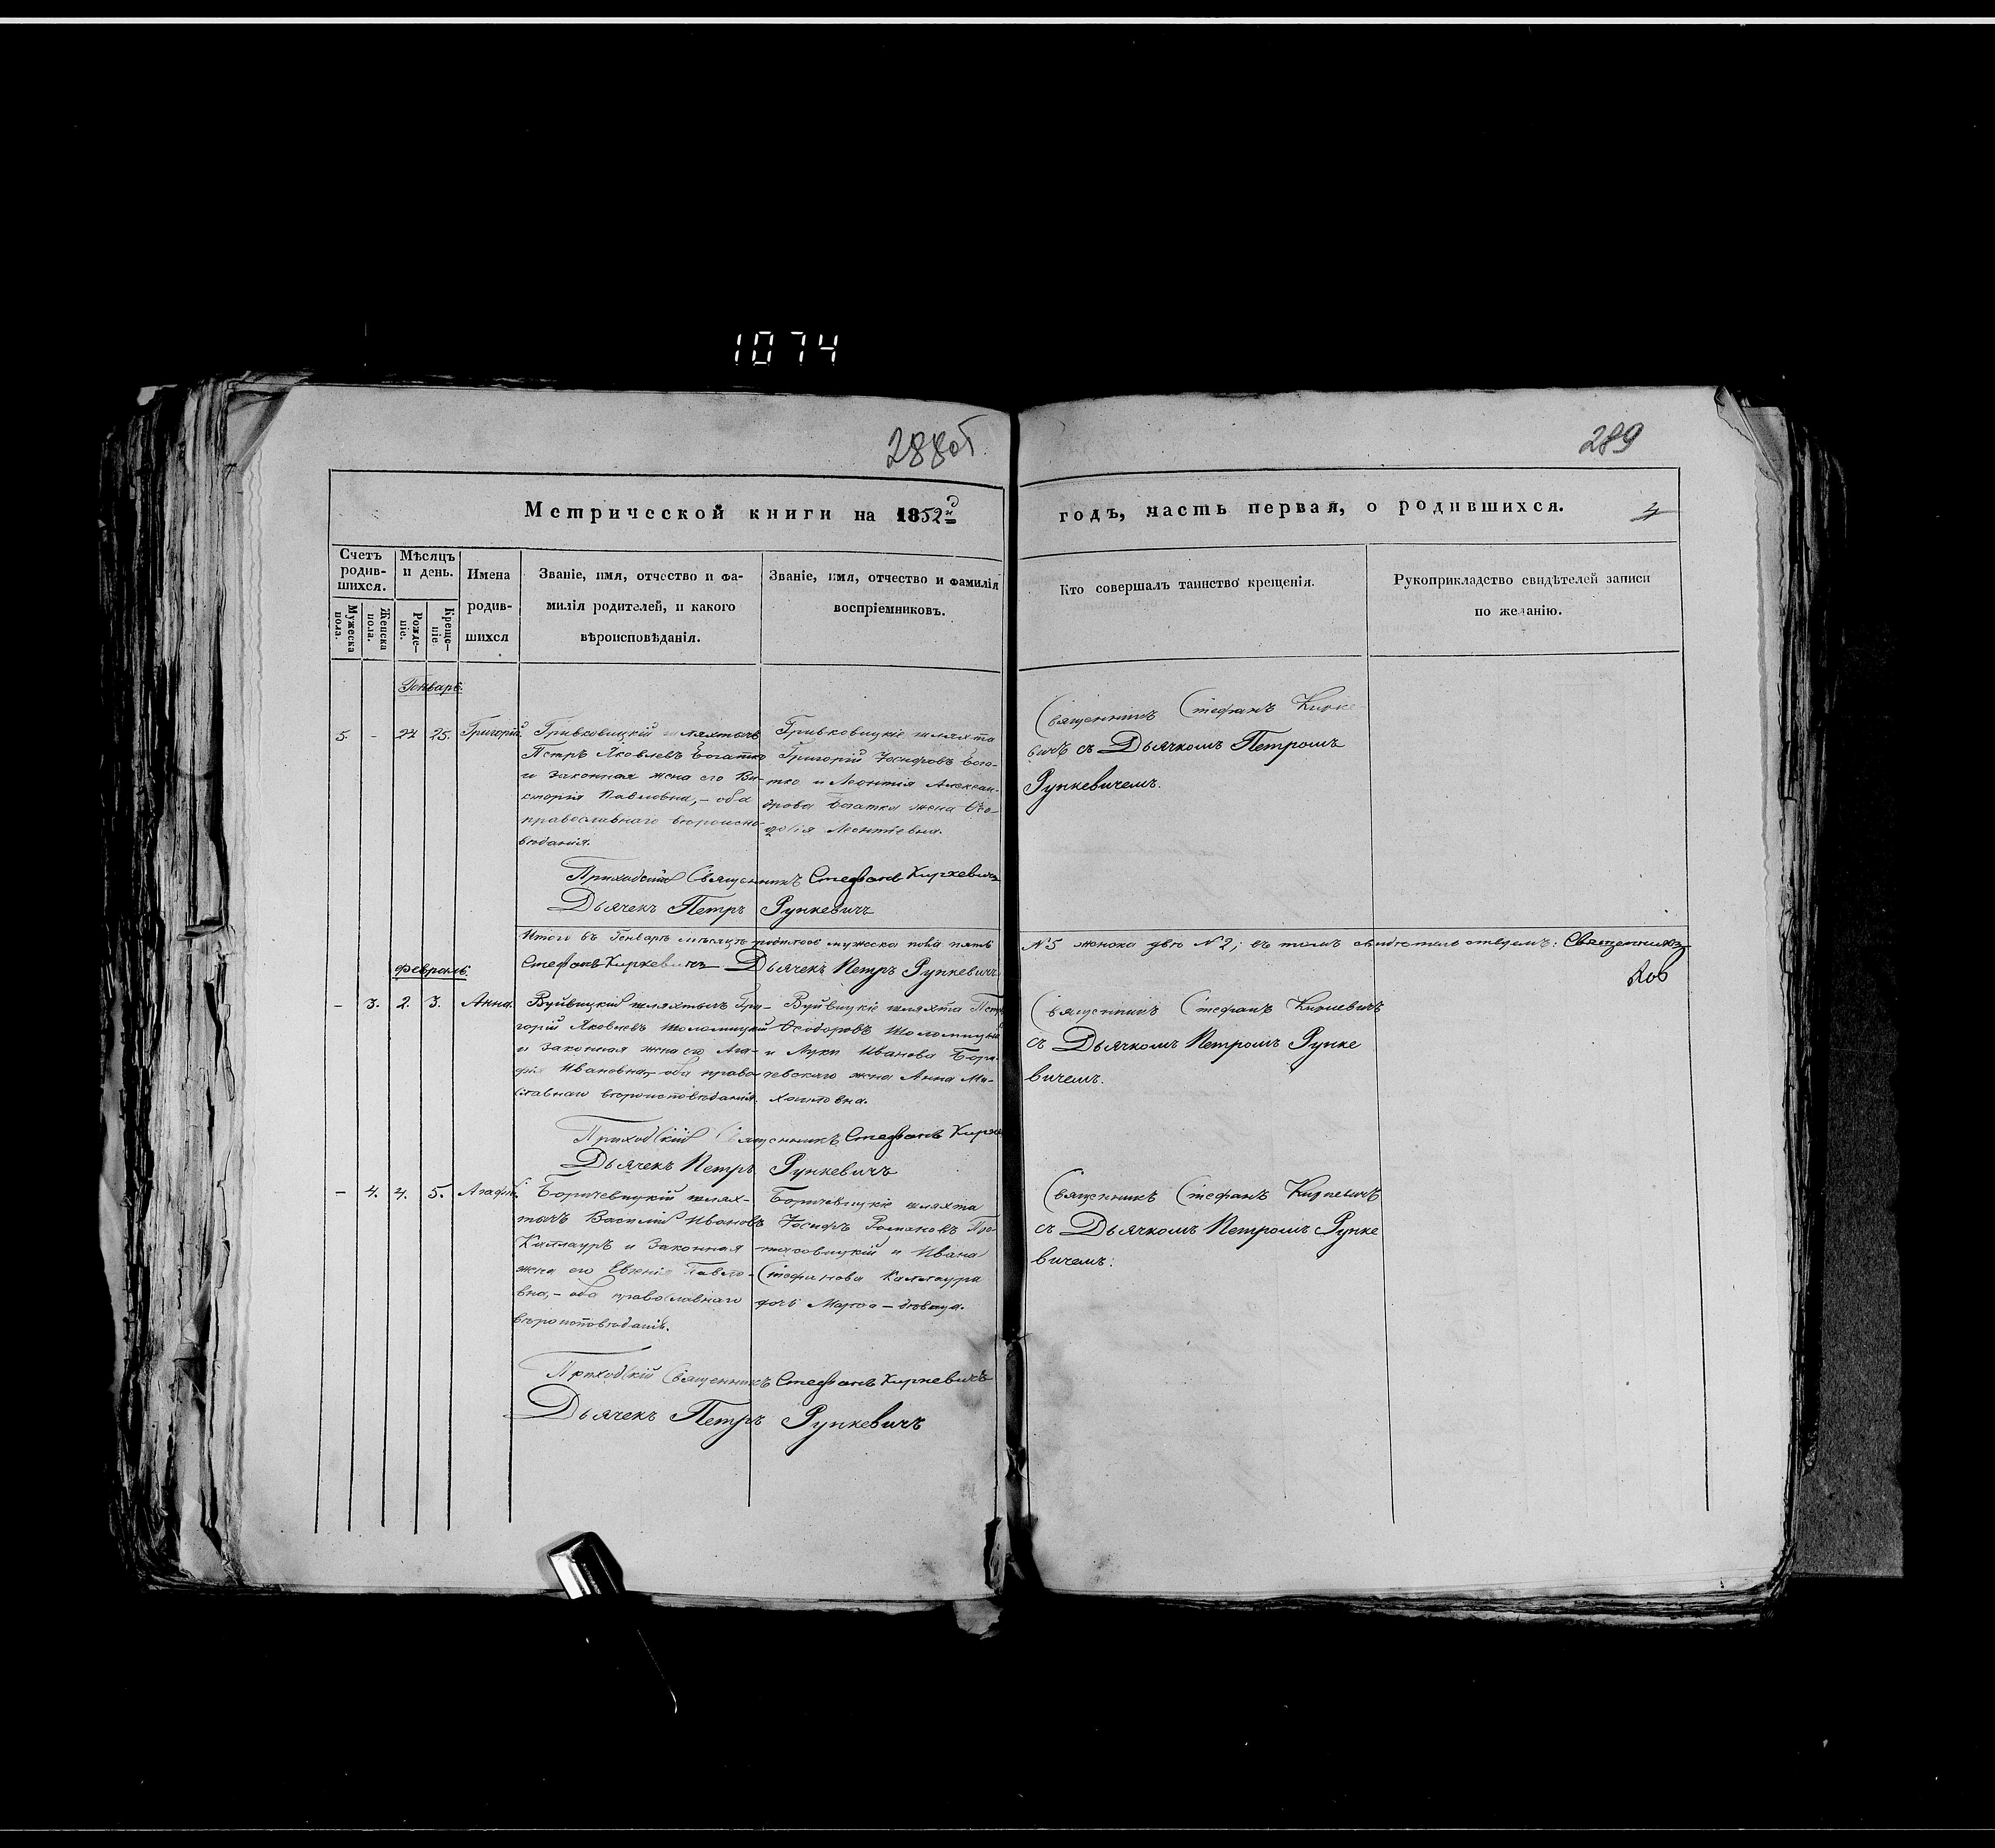 1074
288об.
289
Метрической книги на 1852й
годъ, часть первая, о родившихся.
4
Счетъ родив-шихся.
Мѣсяцъ и день.
Мужеска пола.
Женска пола.
Рожде-ніе.
Креще-ніе
Имена
родив-
шихся
Званіе, имя, отчество и фа-
милія родителей, и какого
вѣроисповѣданія.
Званіе, имя, отчество и фамилія
воспріемниковъ.
Кто совершалъ таинство крещенія.
Рукоприкладство свидѣтелей записи
по желанію.
Генварь.
5. - 24 25. Григорій.
Гривковицкій шляхтичъ
Петръ Яковлевъ Богатко
и законная жена его Ви-
кторія Павловна, - оба
православнаго вѣроиспо-
вѣданія.
Гривковицкіе шляхта
Григорій Іосифовъ Бога-
тко и Леонтія Алексан-
дрова Богатка жена Ѳео-
Леонтіевна.
Священникъ Стефанъ
съ Дьячкомъ Петромъ
Рункевичемъ.
Приходскій Священникъ Стефанъ Киркевичъ
Дьячекъ Петръ Рункевичъ
Итого въ Генварѣ мѣсяцѣ родилось мужеска пола пять
№5 женска двѣ №2; въ томъ свидѣтельствуемъ: Священникъ
Стефанъ Киркевичъ Дьячекъ Петръ Рункевичъ
Февраль.
- 3. 2. 3. Анна.
Вуйвицкій шляхтичъ Гри-
горій Яковлевъ Шоломицкій
и законная жена его Ага-
фія Ивановна, оба право-
славнаго вѣроисповѣданія.
Вуйвицкіе шляхта Петръ
Ѳеодоровъ Шоломицкій
и Луки Иванова Бори-
чевскаго жена Анна Ми-
хайловна.
Священникъ Стефанъ Киркевичъ
съ Дьячкомъ Петромъ Рунке
вичемъ.
Приходскій Священникъ Стефанъ
Дьячекъ Петръ Рункевичъ
- 4. 4. 5. Агафія.
Боричевицкій шлях-
тичъ Василій Ивановъ
Каллауръ и законная
жена его Евгенія Павло-
вна, - оба православнаго
вѣроисповѣданія.
Боричевицкіе шляхта
Іосифъ Романовъ Про-
тасовицкій и Ивана
Стефанова Каллаура
дочь Марѳа - дѣвица.
Священникъ Стефанъ Киркевичъ
съ Дьячкомъ Петромъ Рунке
вичемъ.
Приходскій Священникъ Стефанъ Киркевичъ
Дьячекъ Петръ Рункевичъ